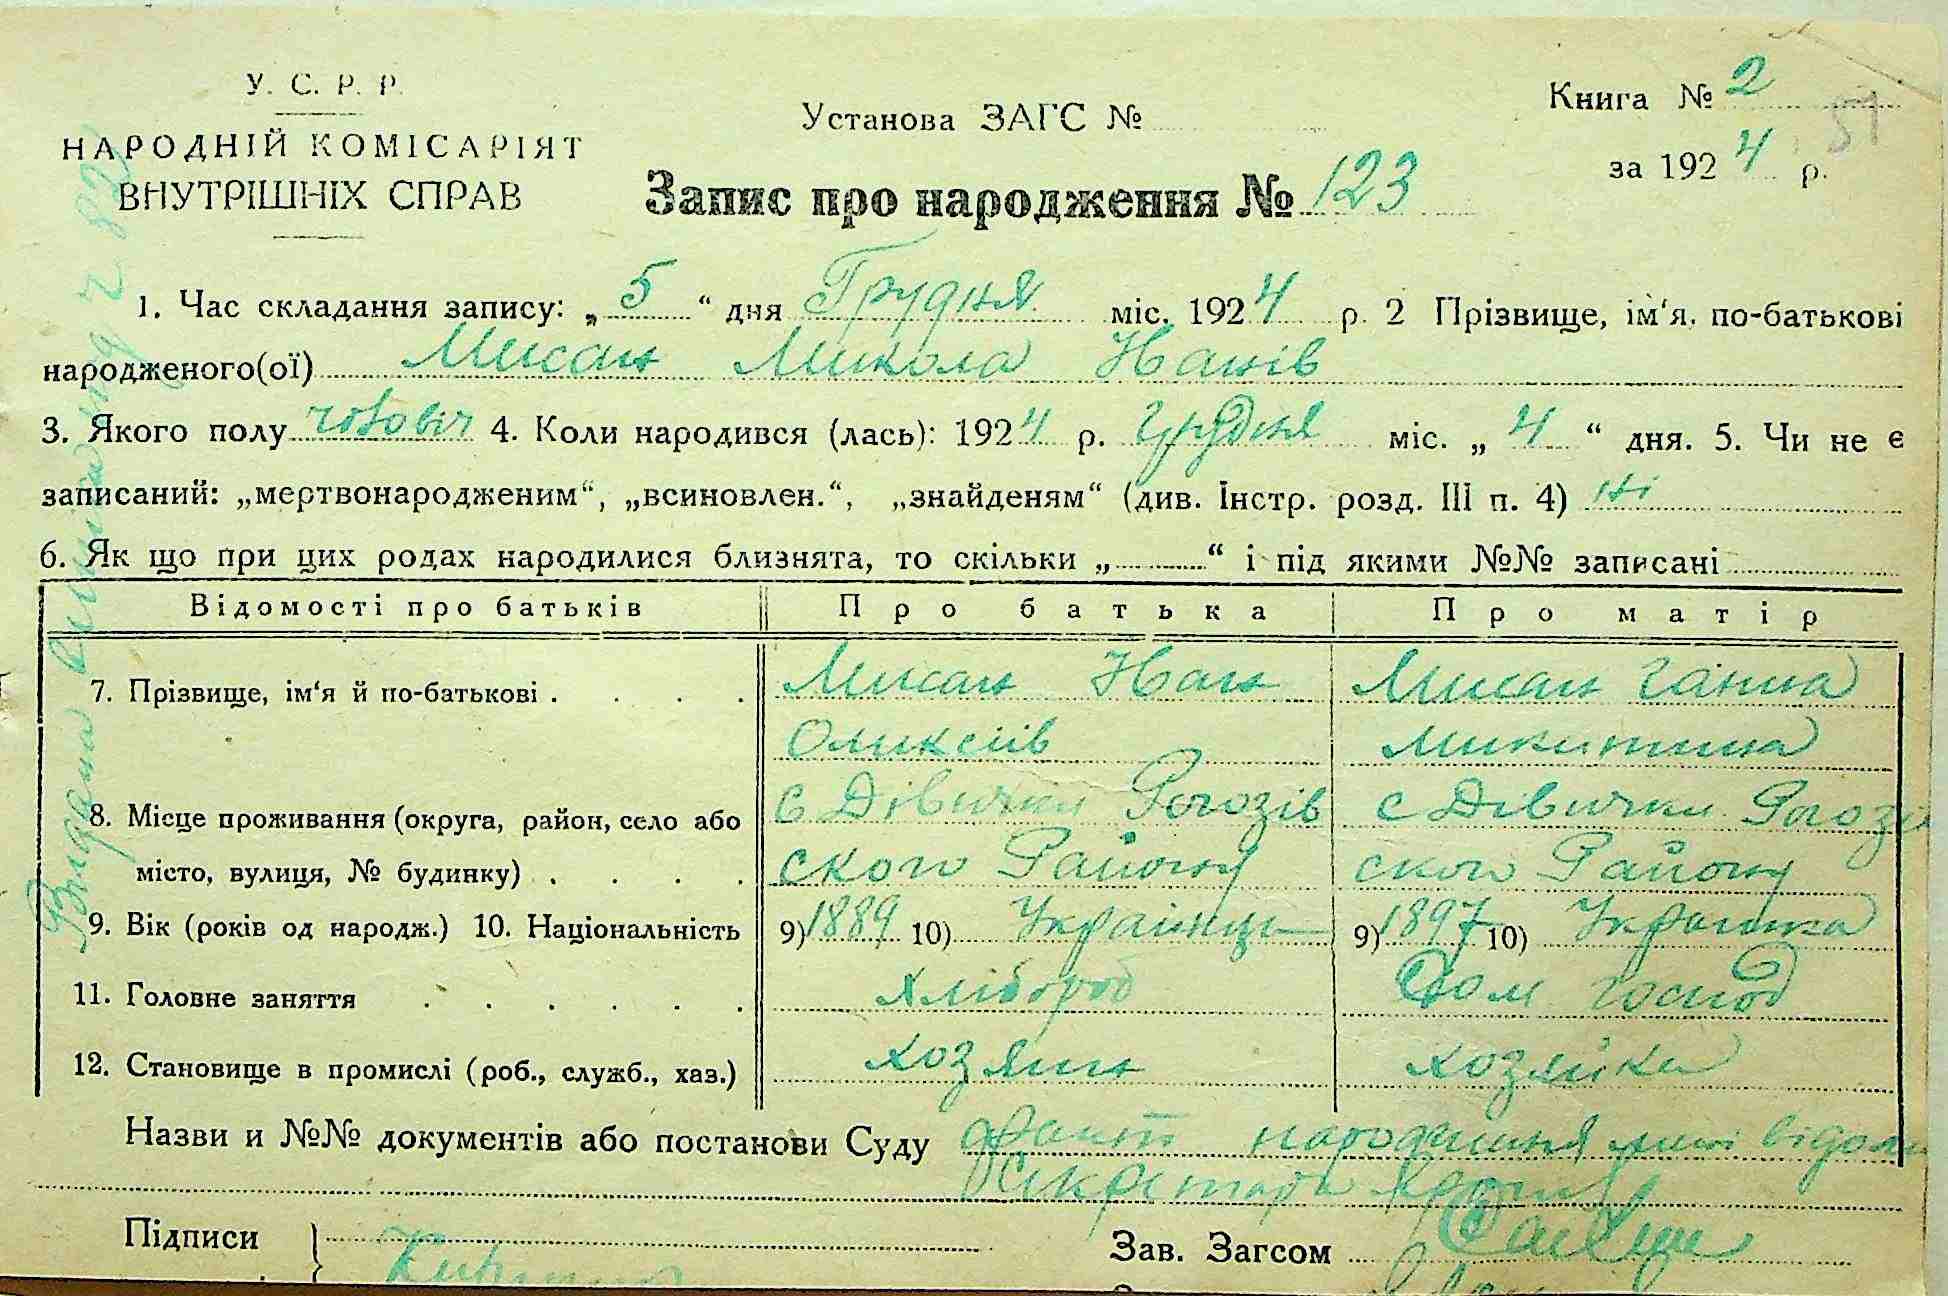 У. С. Р. Р.
НАРОДНІЙ КОМІСАРІЯТ
ВНУТРІШНІХ СПРАВ
Установа ЗАГС №
Книга № 2
51
за 1924 р.
Запис про народження № 123
1. Час складання запису: „5“ дня Грудня міс. 1924 р. 2 Прізвище, ім'я, по-батькові
народженого(ої) Мисан Микола Іванів
3. Якого полу чоловіч 4. Коли народився (лась): 1924 р. Грудня міс. „4“ дня. 5. Чи не є
записаний: „мертвонародженим“, „всиновлен.“, „знайденям“ (див. Інстр. розд. III п. 4) ні
6. Як що при цих родах народилися близнята, то скільки „ “ і під якими №№ записані
Відомості про батьків Про батька Про матір
7. Прізвище, ім'я й по-батькові . . . . Мисан Іван Мисан Ганна
Олексіїв Микитина
8. Місце проживання (округа, район, село або с Дівички Рогозів с Дівички Рогозів
місто, вулиця, № будинку) . . . . ского Району ского Району
9. Вік (років од народж.) 10. Національність 9) 1889 10) Українець 9) 1897 10) Українка
11. Головне заняття . . . . . . Хлібороб Дом господ
12. Становище в промислі (роб., служб., хаз.) хозяин хозяйка
Назви и №№ документів або постанови Суду факт народження мені відом
Секретарь
Підписи
Зав. Загсом
Видана